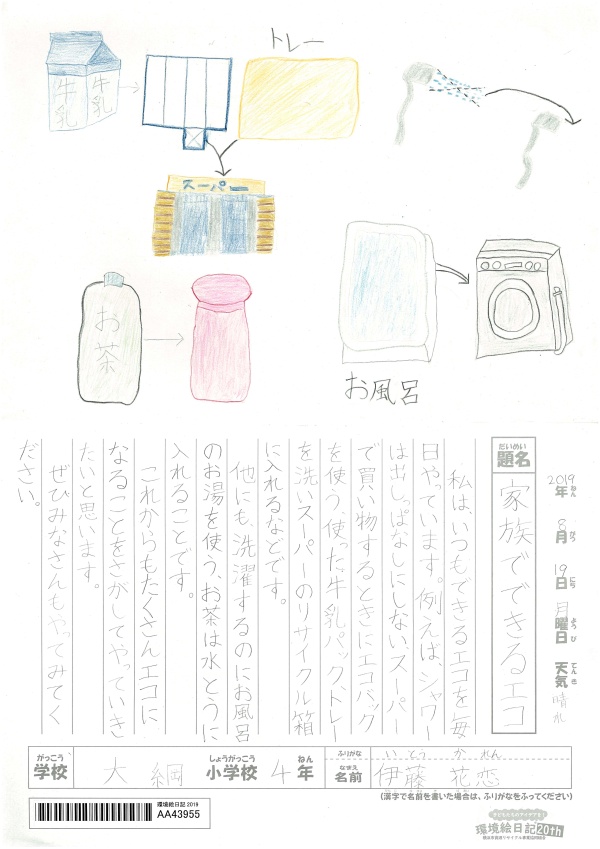 トレー
牛乳
牛乳
スーパー
お茶
お風呂
2019年 8月 19日 月曜日 天気 晴れ
ねん がつ にち よう び てん き
だいめい
題名
家族でできるエコ
私は、いつもできるエコを毎
日やっています。例えば、シャワー
は出しっぱなしにしない、スーパー
で買い物するときにエコバック
を使う、使った牛乳パック、トレー
を洗い、スーパーのリサイクル箱
に入れるなどです。
他にも、洗濯するのにお風呂
のお湯を使う、お茶は水とうに
入れることです。
これからもたくさんエコに
なることをさがしてやっていき
たいと思います。
ぜひみなさんもやってみてく
ださい。
がっこう しょうがっこう ねん
学校 大綱 小学校 4年
ふりがな いとう かれん
なまえ
名前 伊藤 花恋
(漢字で名前を書いた場合は、ふりがなをふってください)
環境絵日記 2019
AA43955
環境絵日記20th